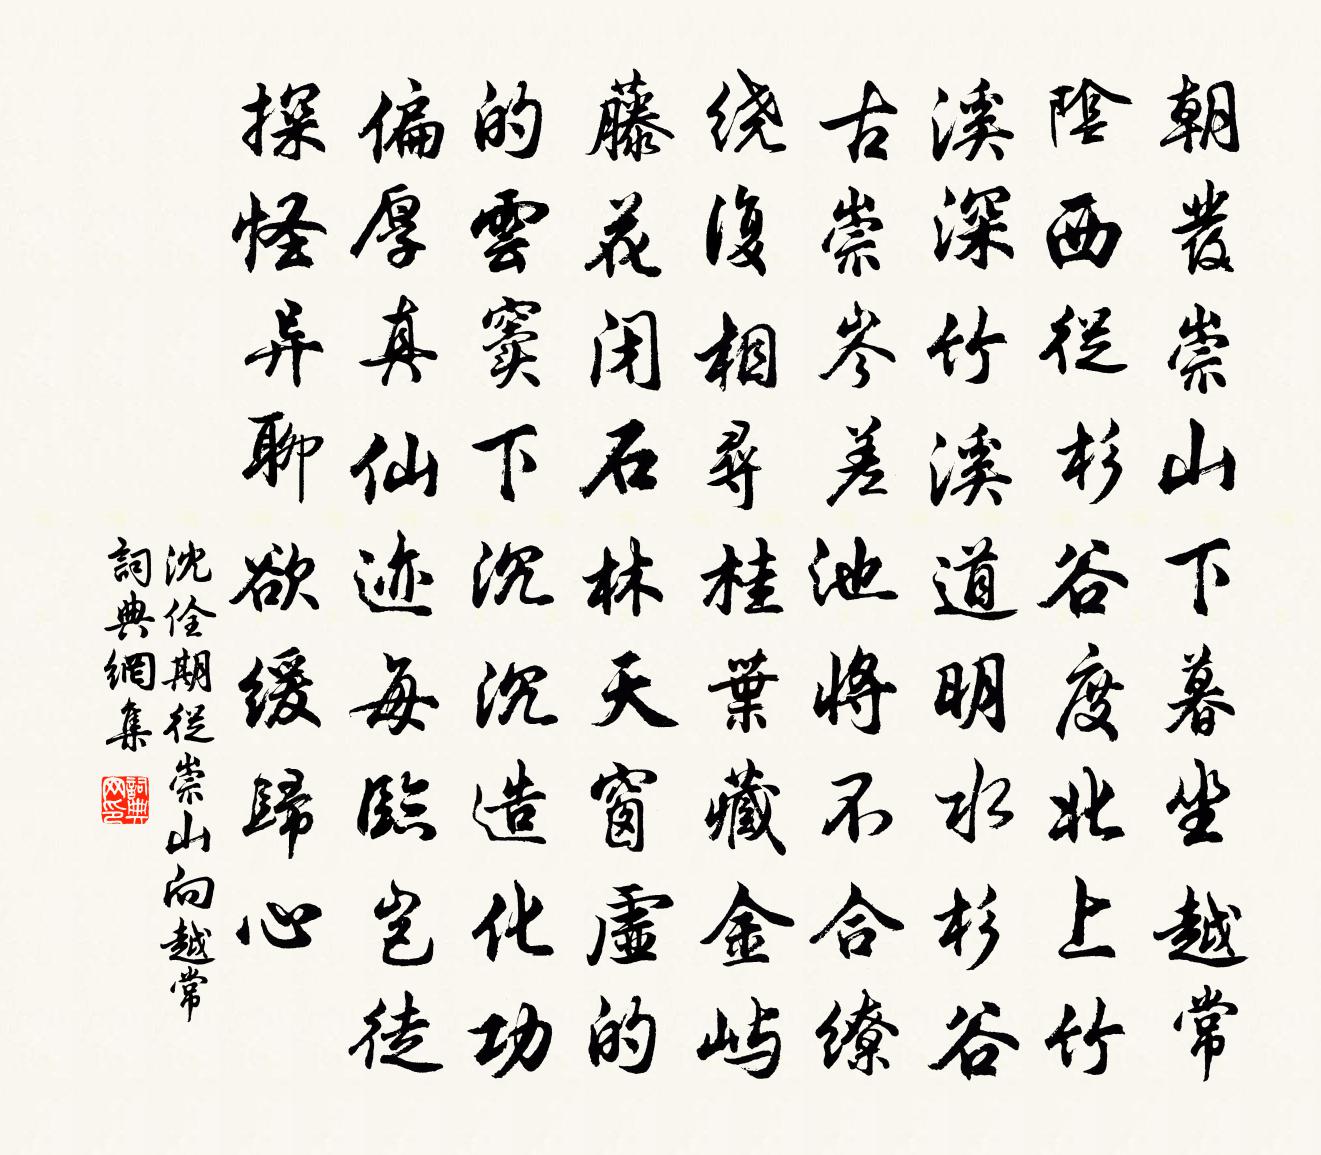 朝發崇山下暮坐越常
陰西從杉谷度北上竹
溪深竹溪道明水杉谷
古崇岑差池将不合缭
绕復相尋桂葉藏金屿
藤花闭石林天窗虛的
的雲竇下沉沉造化功
偏厚真仙迹每臨豈徒
探怪异聊欲缓歸心
沈佺期從崇山向越常
詞典網集
詞典网印